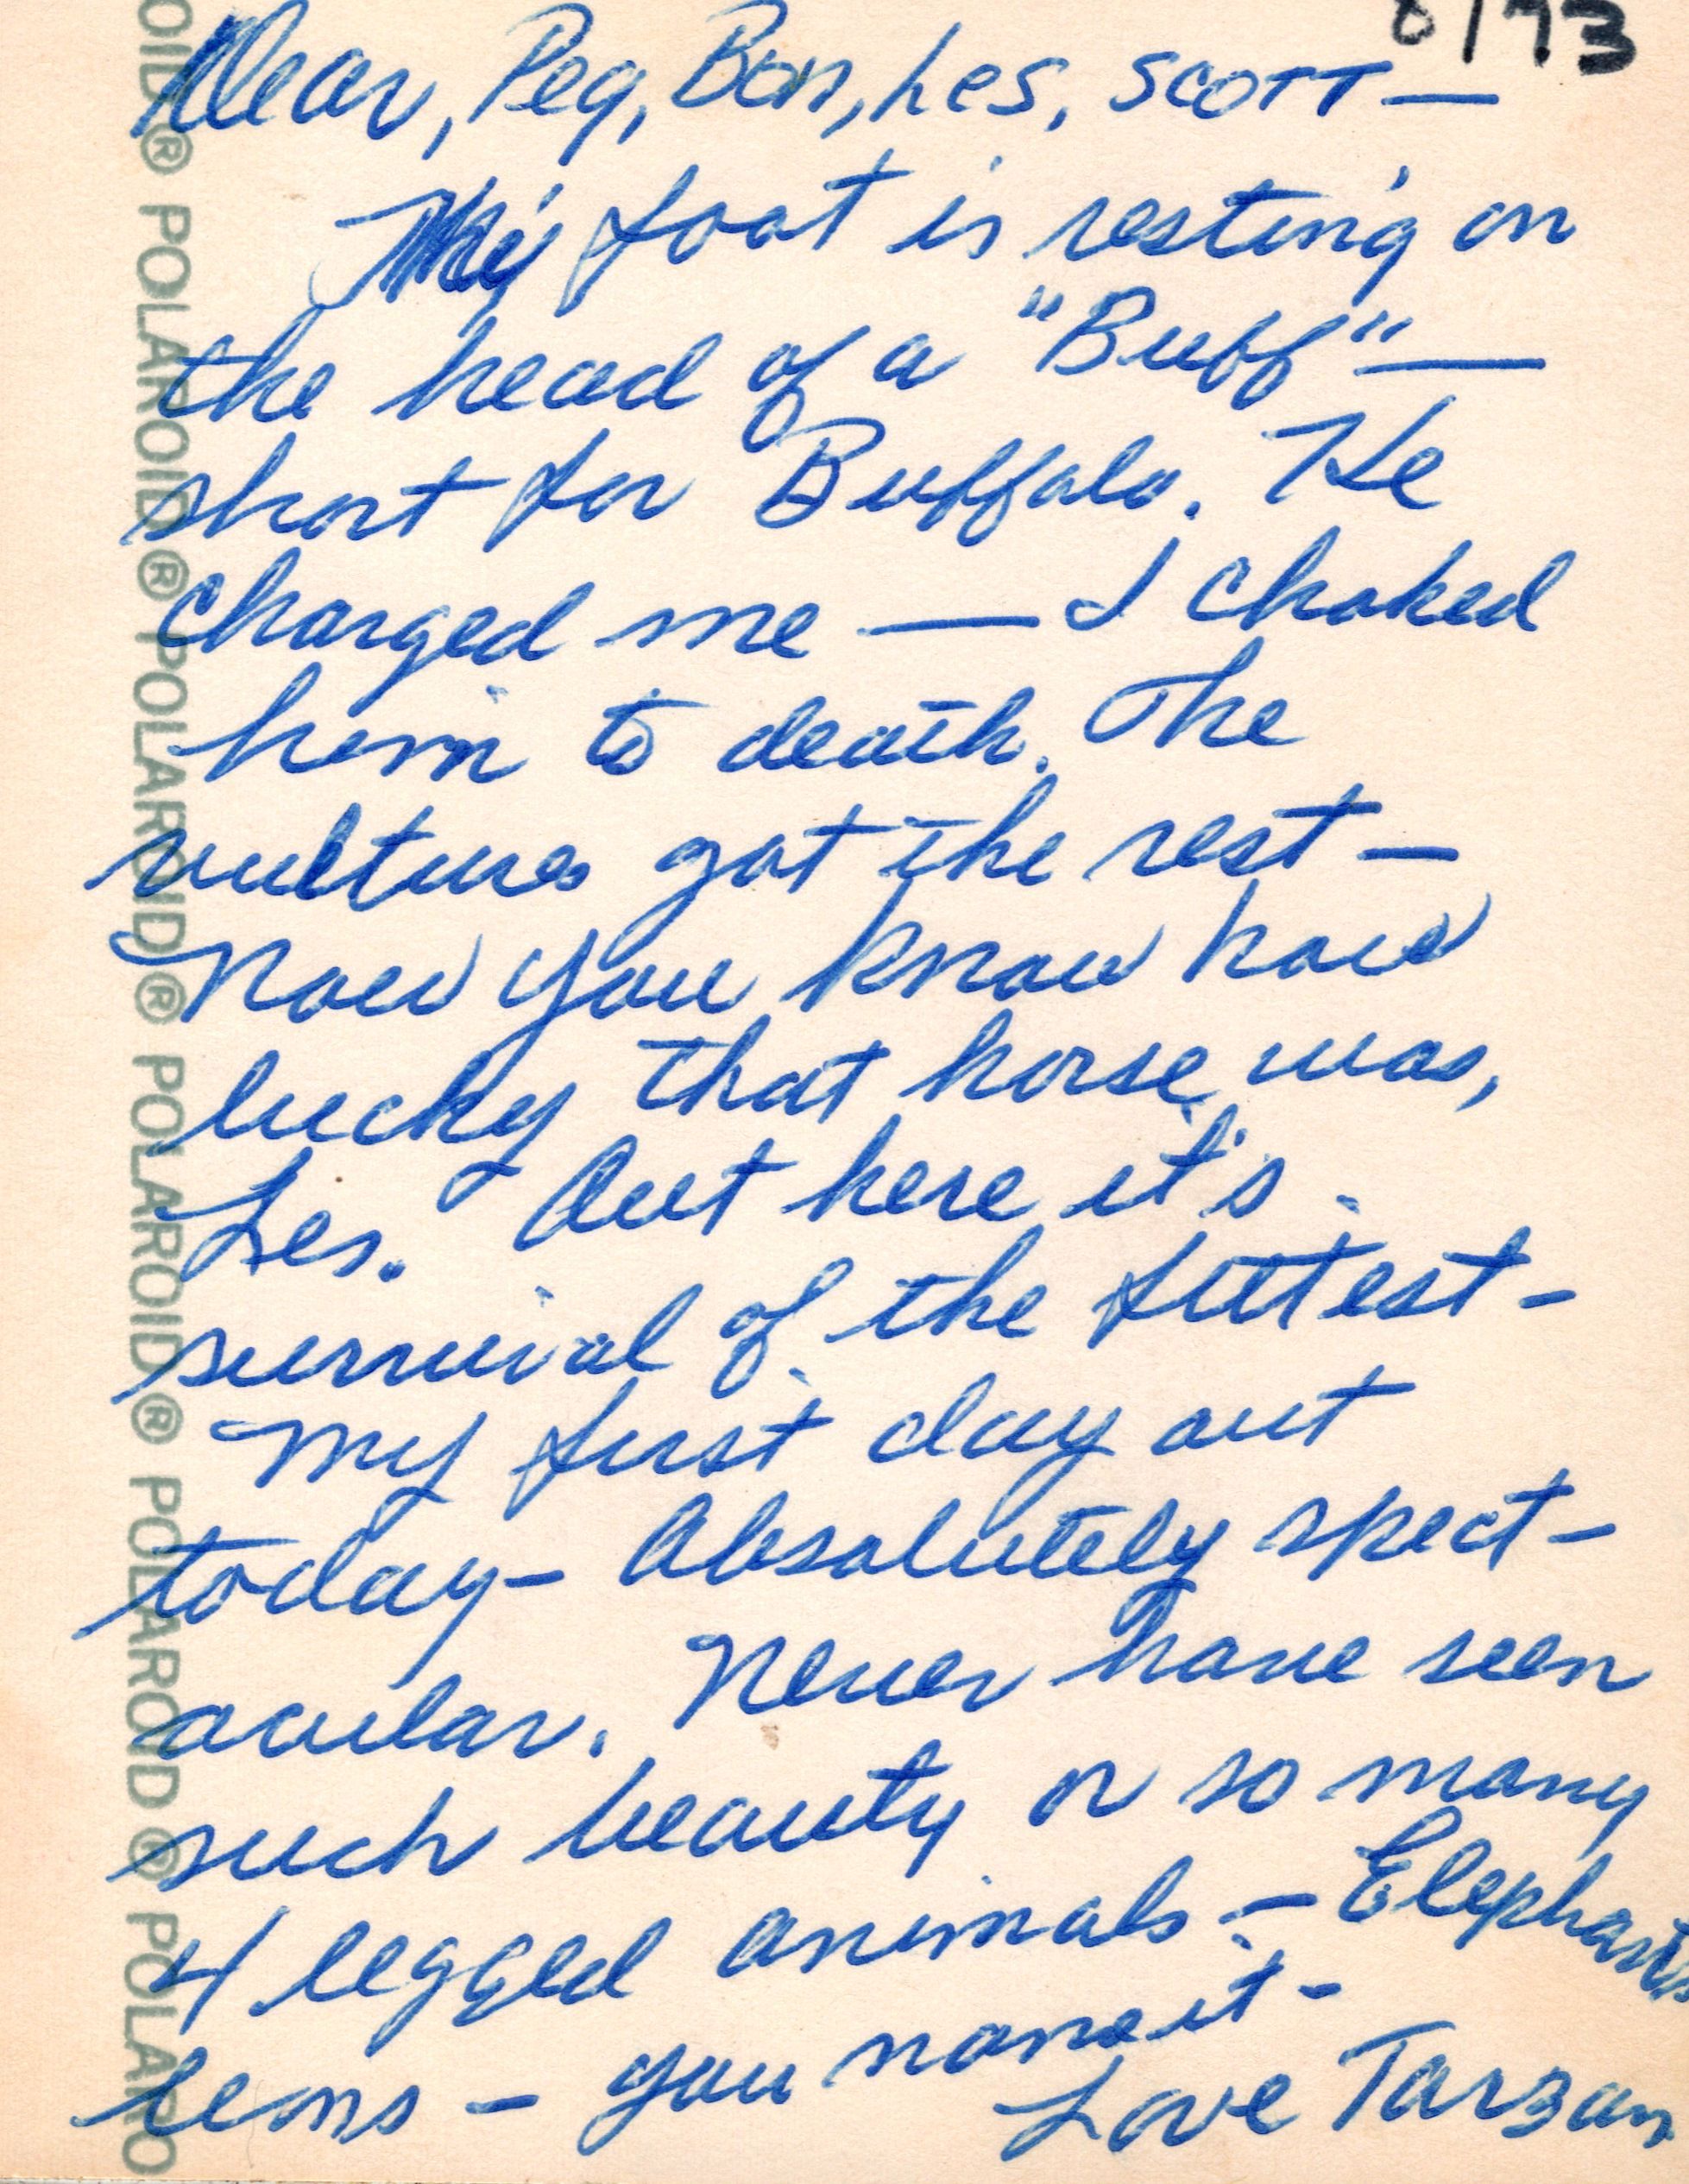 8/73
Dear, Peg, Bon, Les, Scott —
My foot is resting on
the head of a "Buff" —
short for Buffalo. He
charged me — I choked
him to death. The
vultures got the rest —
Now you know how
lucky that horse was,
Les. Out here it's
survival of the fittest -
My first day out
today - Absolutely spect-
acular. Never have seen
such beauty or so many
4 legged animals - Elephants
lions - you name it -
Love Tarzan
OID® POLAROID® POLAROID® POLAROID® POLAROID® POLARO